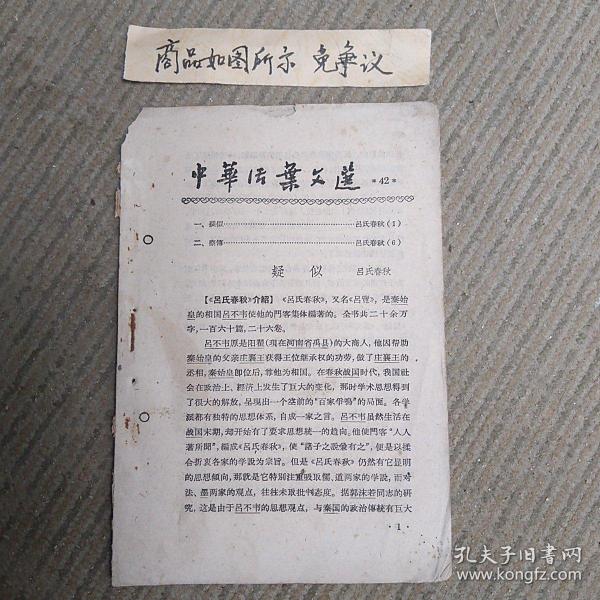 商品如图所示 免争议
中華活葉文選 *42*
一、疑似……………………呂氏春秋(1)
二、察傳……………………呂氏春秋(6)
疑似 呂氏春秋
【《呂氏春秋》介紹】 《呂氏春秋》，又名《呂覽》，是秦始
皇的相国呂不韦使他的門客集体編著的。全书共二十余万
字，一百六十篇，二十六卷。
呂不韦原是阳翟(現在河南省禹县)的大商人，他因帮助
秦始皇的父亲庄襄王获得王位继承权的功劳，做了庄襄王的
丞相，秦始皇即位后，尊他为相国。在春秋战国时代，我国社
会在政治上、經济上发生了巨大的变化，那时学术思想得到
了很大的解放，呈現出一个空前的“百家爭鳴”的局面。各学
派都有独特的思想体系，自成一家之言。呂不韦虽然生活在
战国末期，却开始有了要求思想統一的趋向。他使門客“人人
著所聞”，編成《呂氏春秋》，使“諸子之說兼有之”，便是以揉
合折衷各家的学說为宗旨。但是《呂氏春秋》仍然有它显明
的思想倾向，那就是它特別注重吸取儒、道两家的学說，而对
法、墨两家的观点，往往采取批判态度。据郭沫若同志的研
究，这是由于呂不韦的思想观点，与秦国的政治傳統有巨大
·1·
孔夫子旧书网
www.kongfz.com